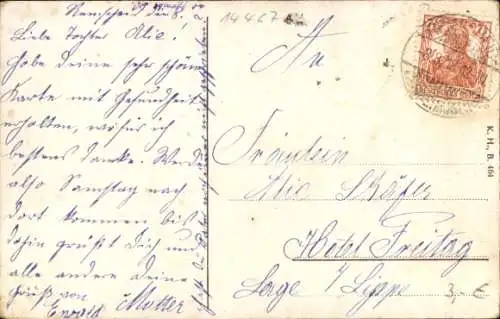 Remscheid den 8.
Liebe Tochter Alie!
Habe deine sehr schöne
Karte mit Gesundheit
erhalten, wofür ich
bestens Danke. Werde
also Samstag nach
dort kommen bis
dahin grüßt Dich und
alle andere deine
Mutter
Gruß von
Ewald
14467
An
Fräulein
Alie Schäfer
Hotel Freitag
Lage i/Lippe
3,- €
K. H., B. 464